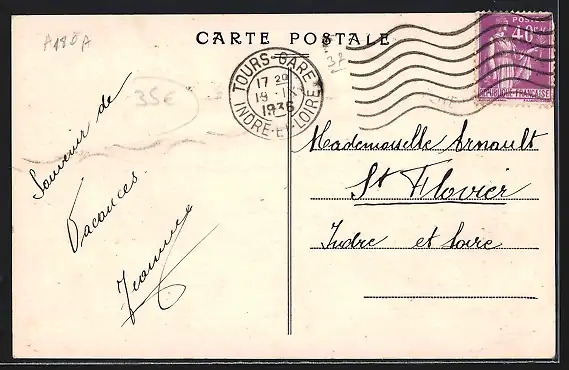 A180A
CARTE POSTALE
37
35€
TOURS-GARE
17 20
19 - IX
1936
INDRE-ET-LOIRE
POSTES
40c
REPUBLIQUE FRANÇAISE
Souvenir de
Vacances
Jeanne
Mademoiselle Arnault
St Flovier
Indre et Loire